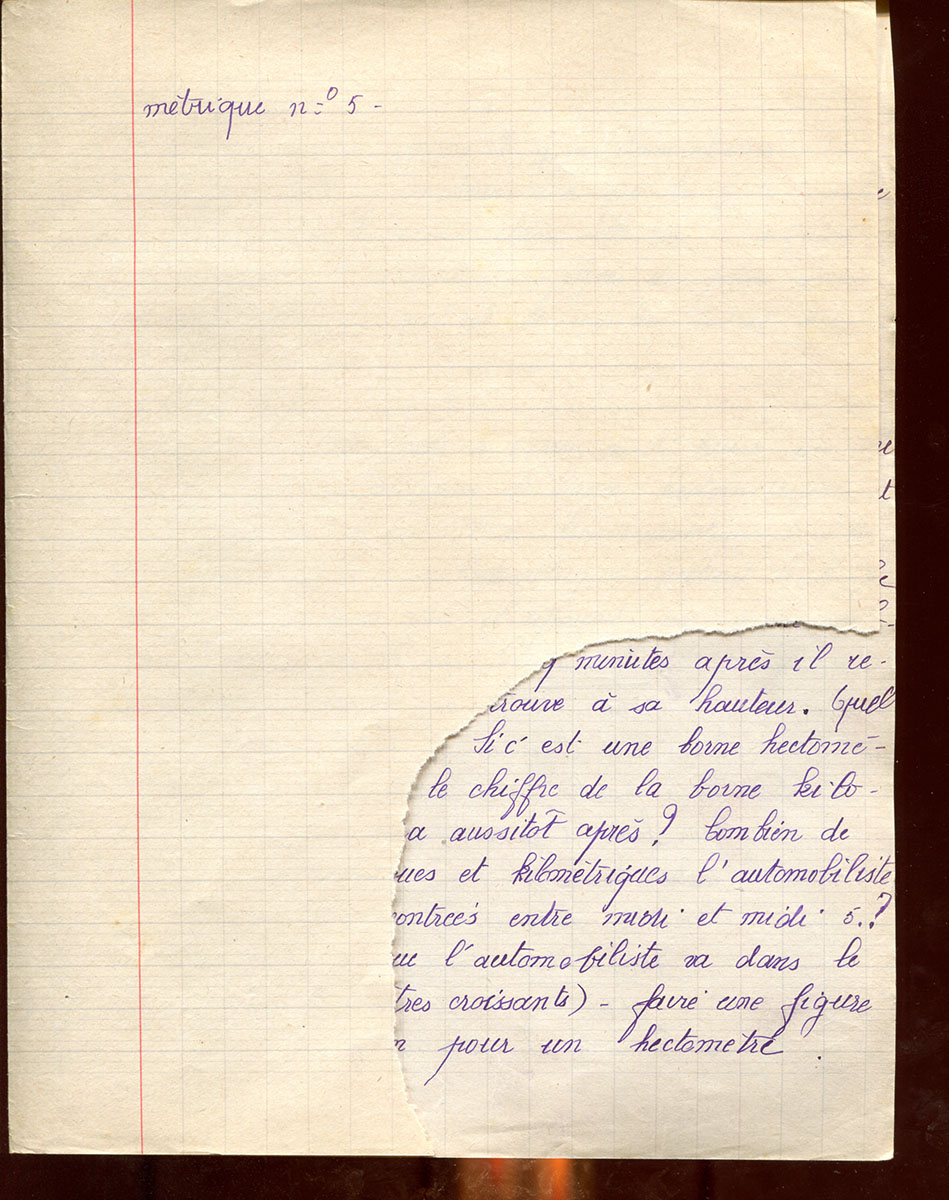 métrique n=º 5 -
minutes après il re-
trouve à sa hauteur. Quel
Si c'est une borne hectomé-
le chiffre de la borne kilo-
a aussitôt après? Combien de
ues et kilométriques l'automobiliste
contrées entre midi et midi 5.?
ue l'automobiliste va dans le
tres croissants) - faire une figure
n pour un hectomètre.